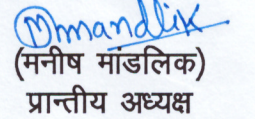 Mmandlik
(मनीष मांडलिक)
प्रान्तीय अध्यक्ष